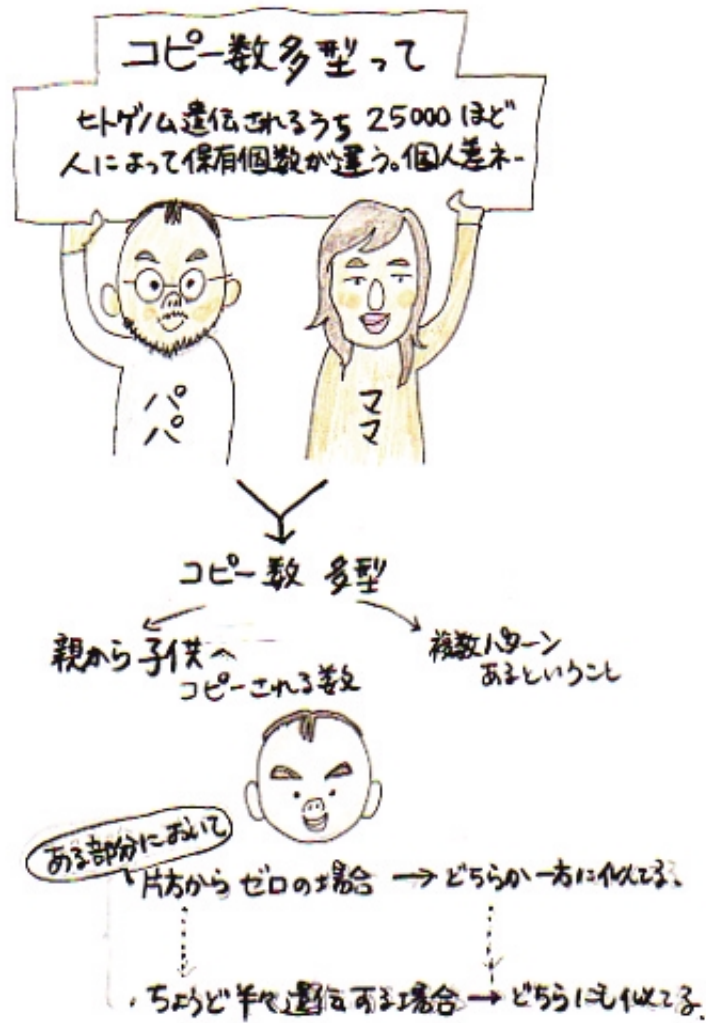 コピー数多型って
ヒトゲノム遺伝されるうち 25000 ほど
人によって保有個数が違う。個人差ネー
パパ
ママ
コピー数 多型
親から子供へ
コピーされる数
複数パターン
あるということ
ある部分において
片方から ゼロの場合 → どちらか一方に似てる。
・ちょうど半々遺伝する場合 → どちらにも似てる。